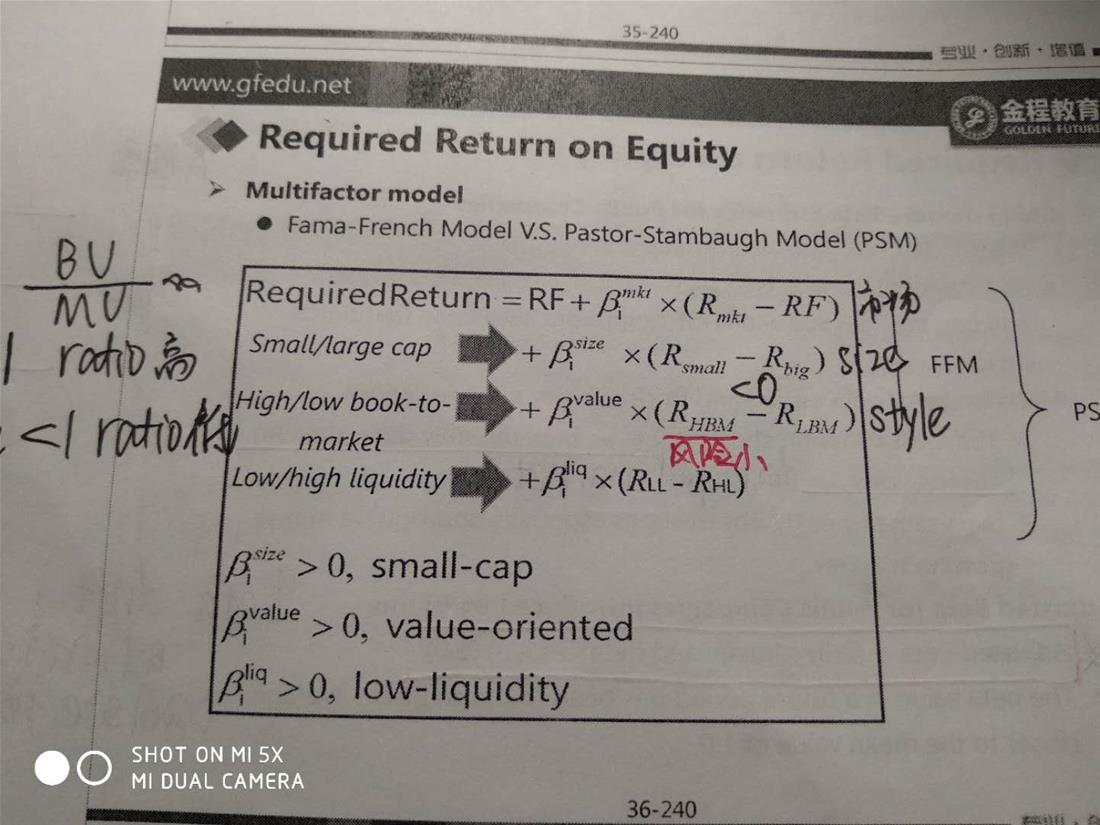 35-240
专业·创新·增值
www.gfedu.net
金程教育
GOLDEN FUTURE
Required Return on Equity
Multifactor model
Fama-French Model V.S. Pastor-Stambaugh Model (PSM)
BV
MV
1 ratio高
<1 ratio低
Required Return = RF + β_i^mkt × (R_mkt − RF) 市场
Small/large cap + β_i^size × (R_small − R_big) size FFM
<0
High/low book-to-market + β_i^value × (R_HBM − R_LBM) style
风险小
Low/high liquidity + β_i^liq × (RLL - RHL)
PS
β_i^size > 0, small-cap
β_i^value > 0, value-oriented
β_i^liq > 0, low-liquidity
SHOT ON MI 5X
MI DUAL CAMERA
36-240